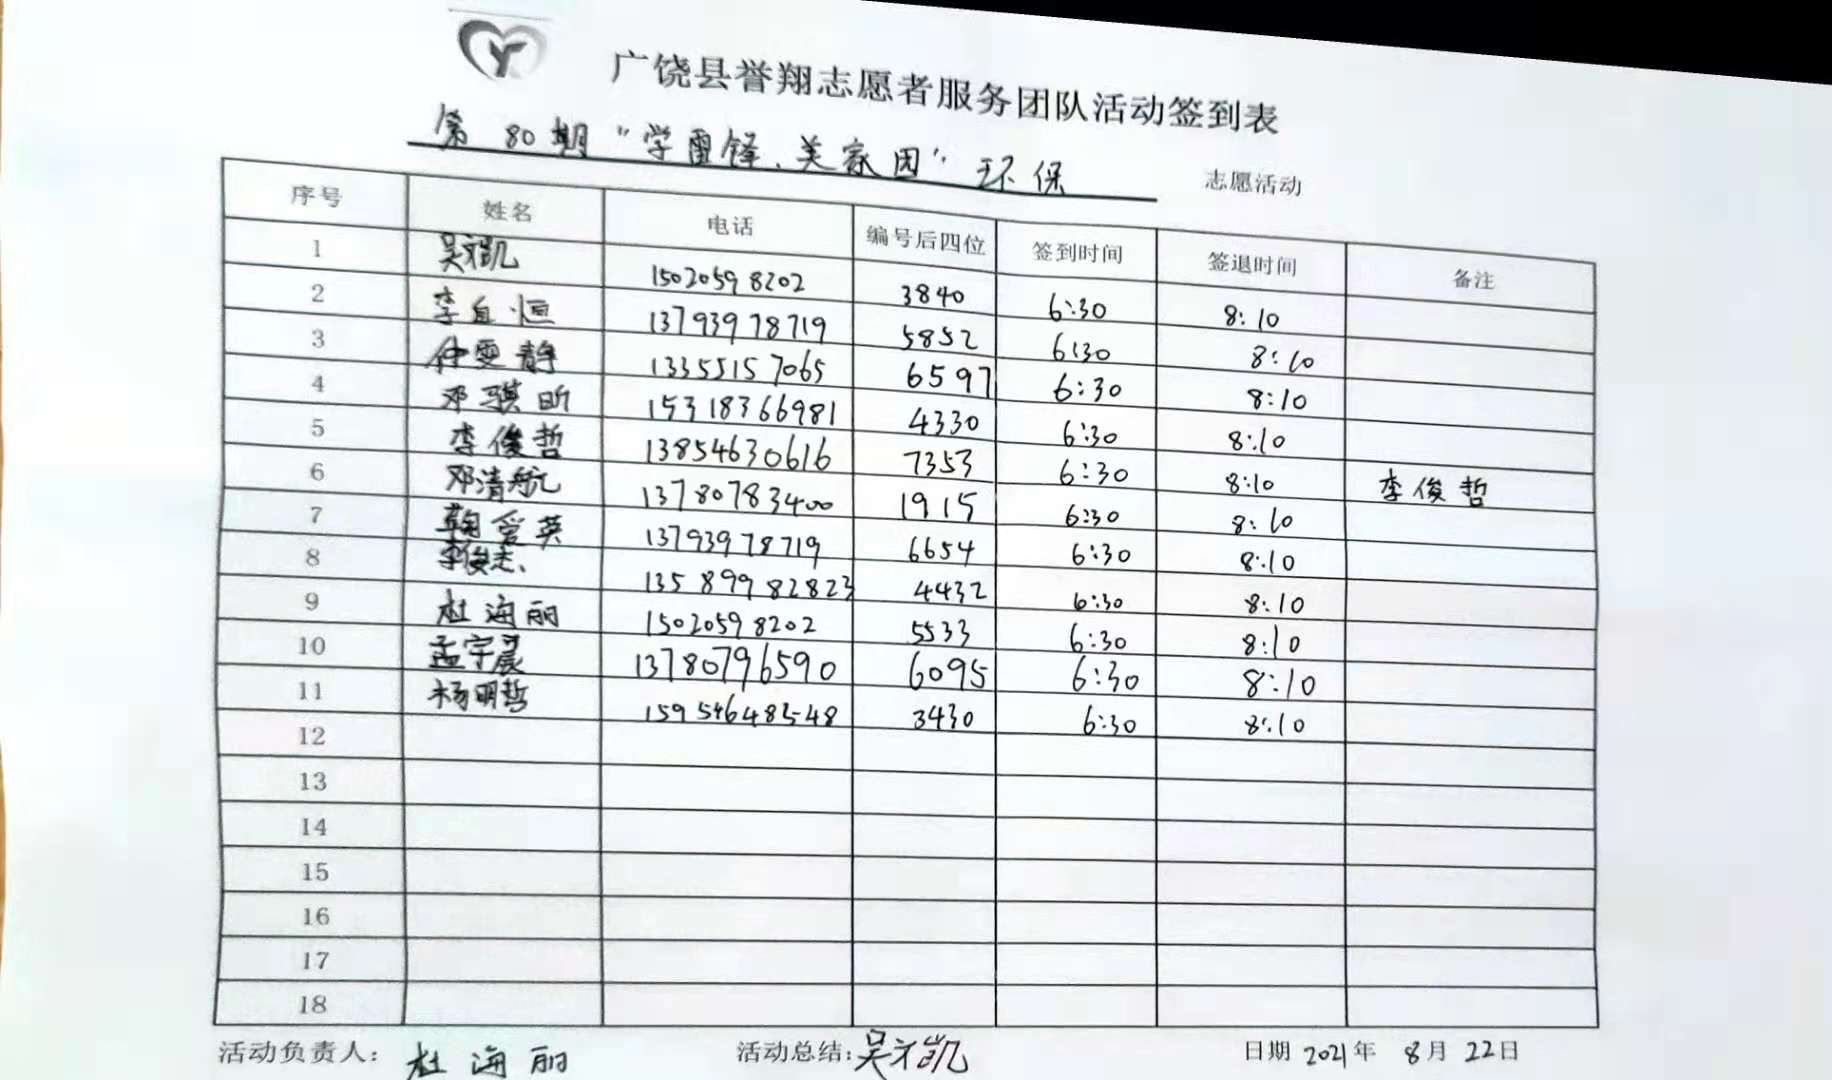 广饶县誉翔志愿者服务团队活动签到表
第 80 期 "学雷锋、美家园" 环保 志愿活动
序号 姓名 电话 编号后四位 签到时间 签退时间 备注
1 15020598202 3840 6:30 8:10
2 李自恒 13793978719 5852 6:30 8:10
3 仲雯静 13355157065 6597 6:30 8:10
4 邓骐昕 15318366981 4330 6:30 8:10
5 李俊哲 13854630616 7353 6:30 8:10 李俊哲
6 邓清航 13780783400 1915 6:30 8:10
7 鞠爱英 13793978719 6654 6:30 8:10
8 李俊志 13589982823 4432 6:30 8:10
9 杜海丽 15020598202 5533 6:30 8:10
10 孟宇晨 13780796590 6095 6:30 8:10
11 杨明哲 15954648548 3430 6:30 8:10
12
13
14
15
16
17
18
活动负责人: 杜海丽 活动总结: 日期 2021年 8月 22日